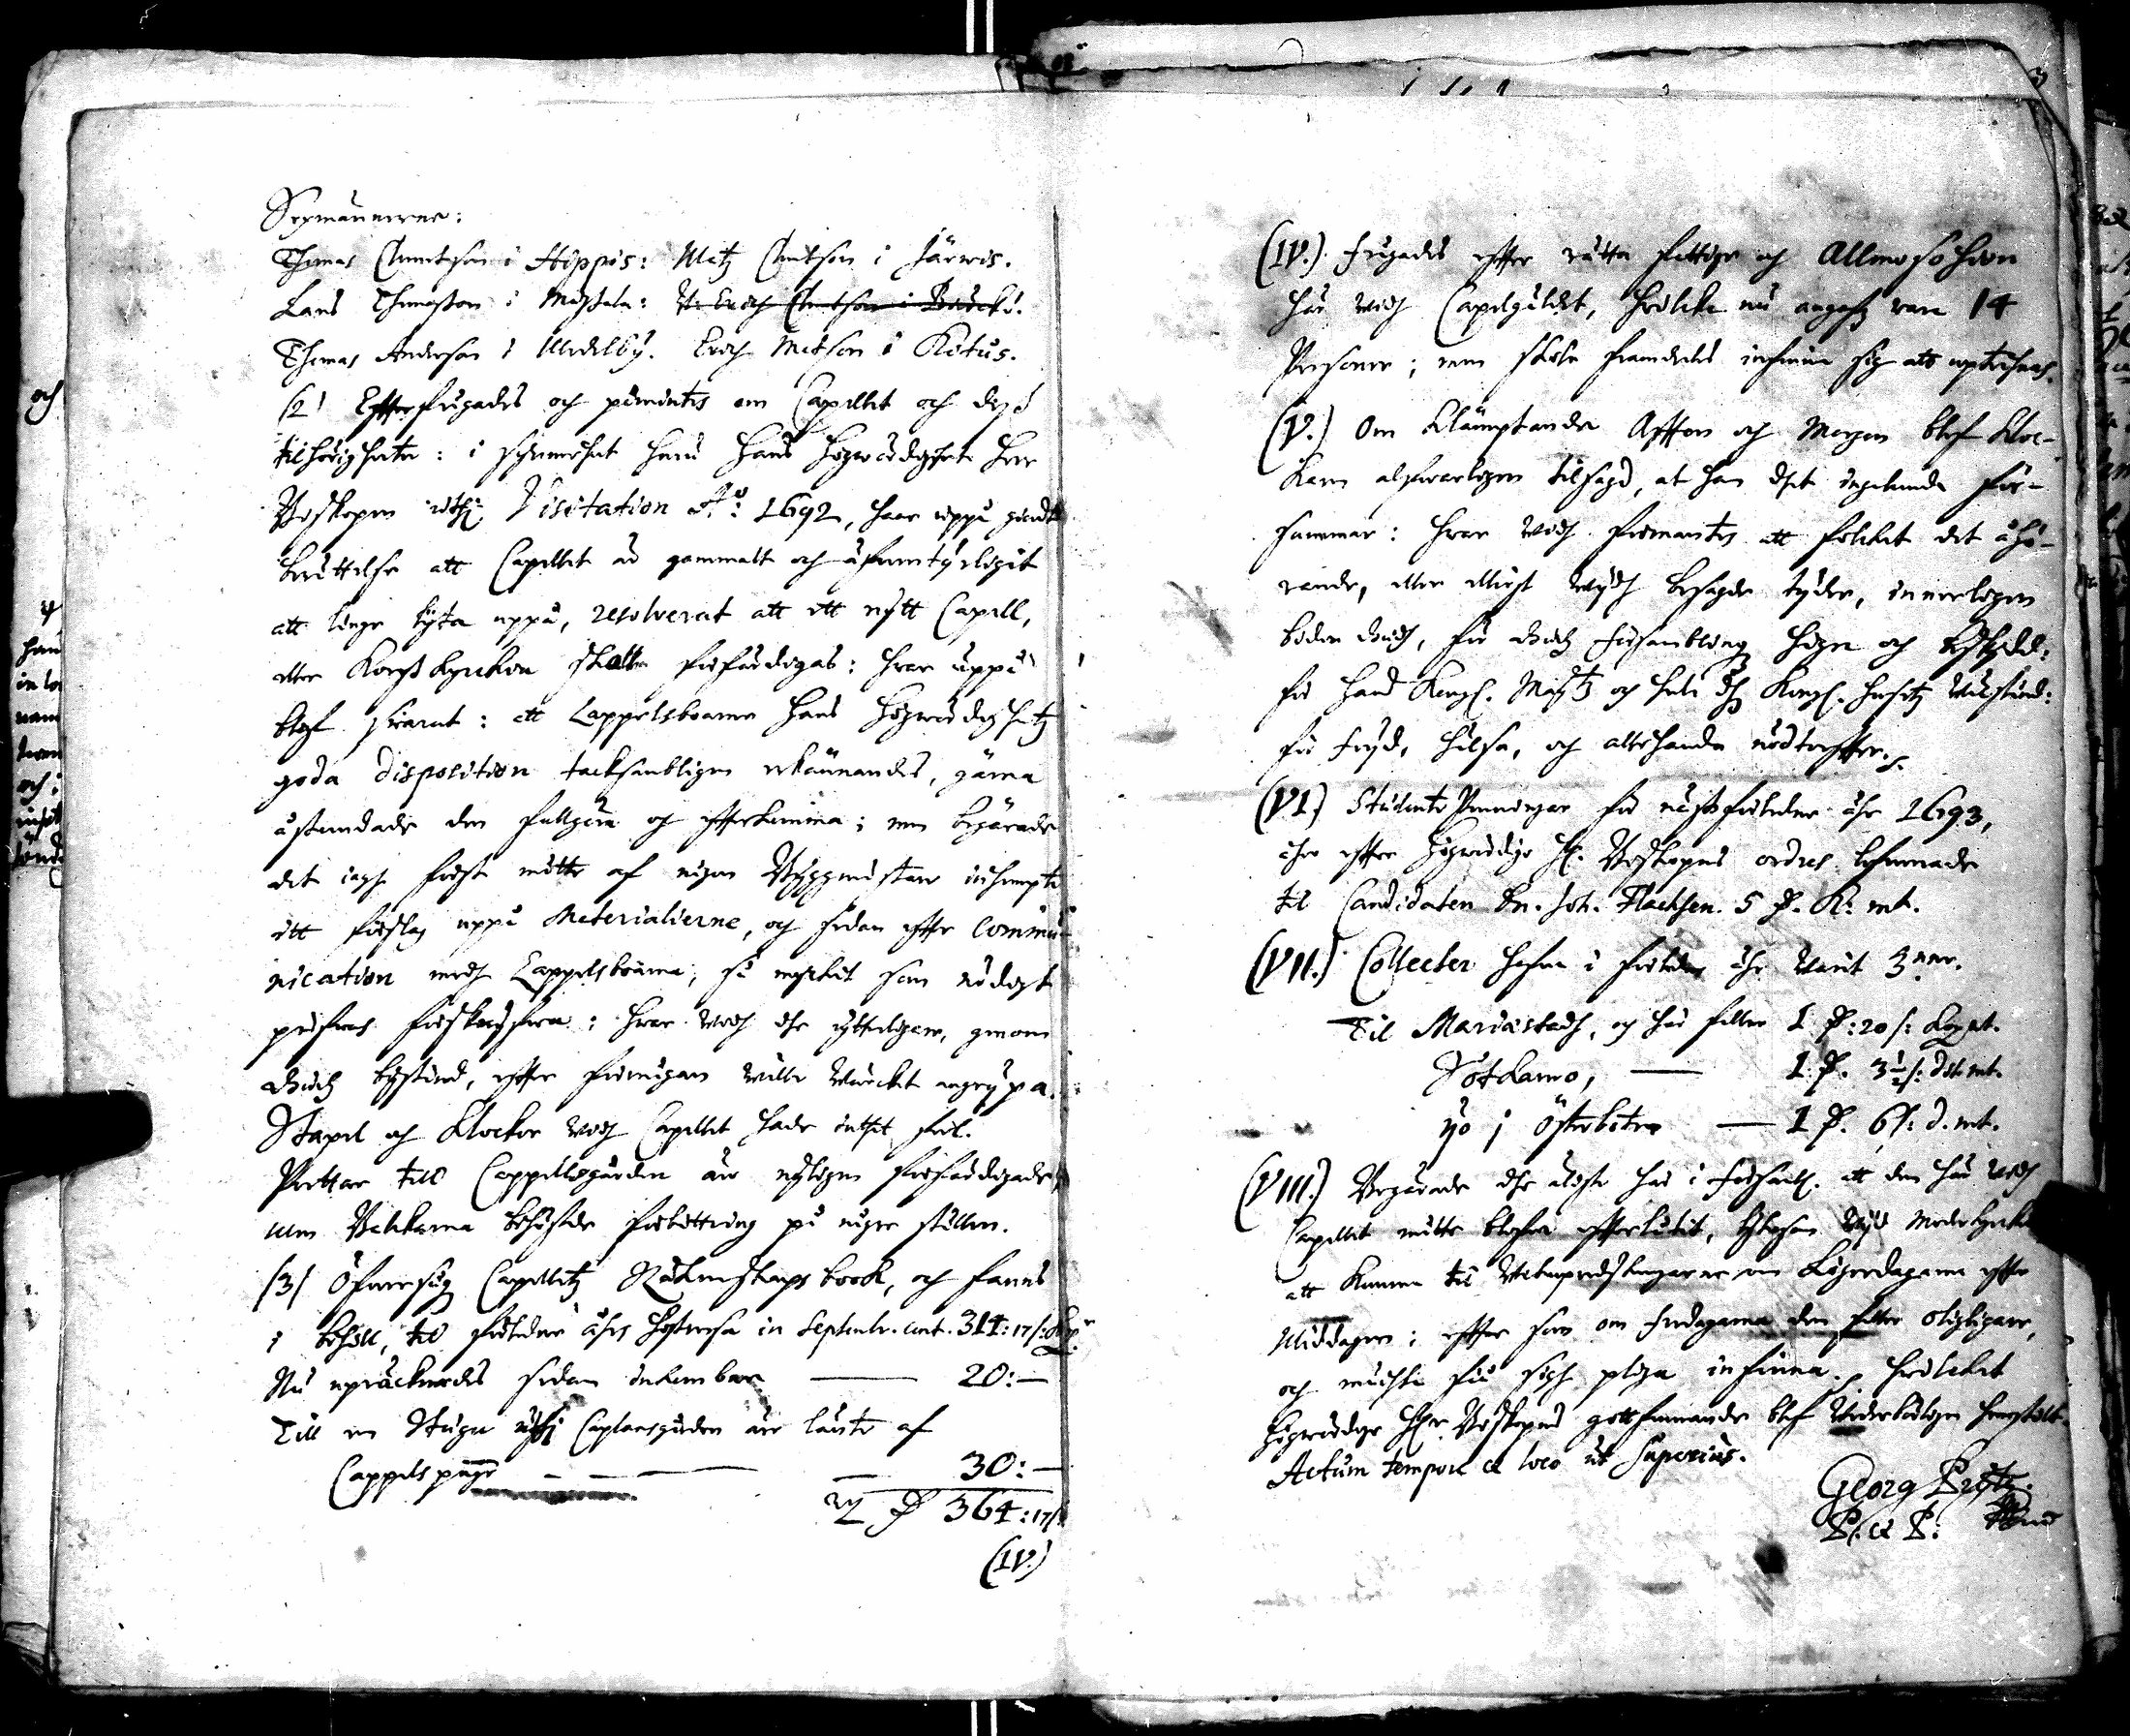 Sexmännerne:
Thomas Clemetson i Hippis: Matz Clemetson i Järwis.
Lars Thomasson i Mattala: Erich Clemetson i
Thomas Anderson i Medelby. Erich Matson i Kotus.
(2) Efterfrågades och påmintes om Capellet och dess
tilhörigheter: i synnerhet huru Hans Högwördighet Herr
Biskopen widh Visitation Aō 1692, haar uppå giordt
berättelse att Capellet är gammalt och äfwentyrligit
att länge lijta uppå, resolverat att ett nytt Capell,
eller Korss kyrckia skulle förfärdigas: hwar uppå
blef swarat: att Cappelsboarna Hans Högwördighetz
goda disposition tacksambligen erkännandes, gärna
åstundade den fullgöra och efterkomma; men begärade
det iagh först måtte af någon Byggmästare inhempta
ett förslag uppå Materialierne, och sedan efter commu-
nication medh Cappelsboarna, så mycket som nödigt
pröfwas förskaffa: hwar widh the ytterligare, genom
Gudz bijstånd, efter förmågan wille wärcket angrypa.
Stapel och Klockor widh Capellet hade intet feel.
Portar till Cappellsgården äre nyligen förfärdigade,
men Balkarna behöfde förbättring på någre ställen.
(3) Öfwersågz Capelletz Räkenskaps book, och fanns
i behåll, till förledne åhrs höstmessa in Septembr. 314:17/:
Nu upräcknades sedan inkombne — 20:—
Till en Stugu widh Caplansgården äre länte af
Cappels pngr — — — 30:—
364:17/:
(IV.)
(IV.) Frågades efter rätta fattige och Allmosohion
här widh Capelgäldet, hwilka nu angafz wara 14
Personer; men skole framdeles infinna sig att uptecknas.
(V.) Om klämptande Afton och Morgon blef Kloc-
karn alfwarligen tilsagd, at han thet ingalunda för-
summar: hwar widh förmantes att folcket det åhö-
rande, eller elliest widh besagde tyder, innerligen
bedia Gudh, för Gudz försambling hägn och beskydd:
för Hans Kongl. Maijtz och hela thes Kongl. husetz wälstånd:
för fryd, hälsa, och altehanda nödtorffter.
(VI.) Studente Penningar för nästförledne åhr 1693,
äre efter Högwördige H. Biskopens ordres lefwerade
til Candidaten Dn. Joh. Flachsen. 5 D. K: mt.
(VII.) Collecter hafwa i förledne åhr warit 3nne.
Til Mariæstadh, och här fallne 1 D: 20/: Kopt.
Sotkamo, — 1 D. 3½/: dito mt.
Ijo i Österbotn — 1 D. 6/: d. mt.
(VIII.) Begärade the äldste här i församl. att dem här widh
Capellet måtte blifwa efterlåtit, lijkasom wijd Moderkyrkian
att komma til Wekupredikningarne om Löghordagarna efter
Middagen: efter som om Fredagarna dem faller olägligare,
och måste få sigh pläga infinna. Hwilcket
Högwördige Hr. Biskopens gottfinnande blef wederböligen hemstält.
Actum tempore et loco ut superius.
Georg
P. et P.